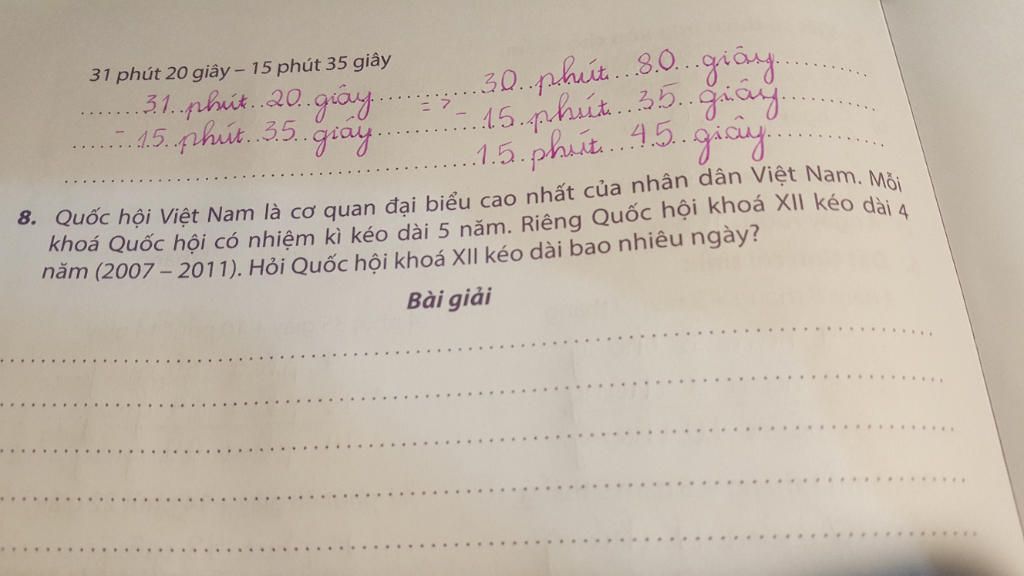 31 phút 20 giây – 15 phút 35 giây
31 phút 20 giây => 30 phút 80 giây
- 15 phút 35 giây - 15 phút 35 giây
15 phút 45 giây
8. Quốc hội Việt Nam là cơ quan đại biểu cao nhất của nhân dân Việt Nam. Mỗi
khoá Quốc hội có nhiệm kì kéo dài 5 năm. Riêng Quốc hội khoá XII kéo dài 4
năm (2007 – 2011). Hỏi Quốc hội khoá XII kéo dài bao nhiêu ngày?
Bài giải